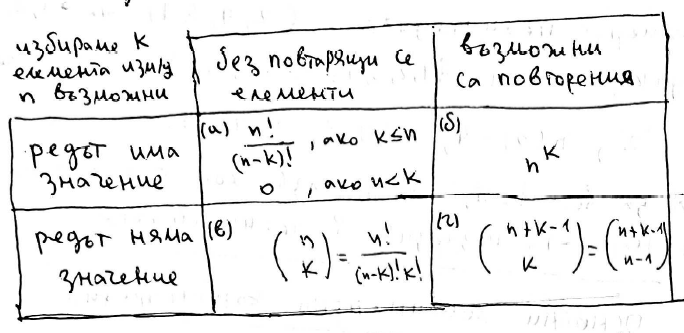 избираме k
елемента изм/у
n възможни
без повтарящи се
елементи
възможни
са повторения
редът има
значение
(а) n!/(n-k)! , ако k≤n
0 , ако n<k
(б)
n^k
редът няма
значение
(в) (n k) = n!/((n-k)!k!)
(г) (n+k-1 k) = (n+k-1 n-1)